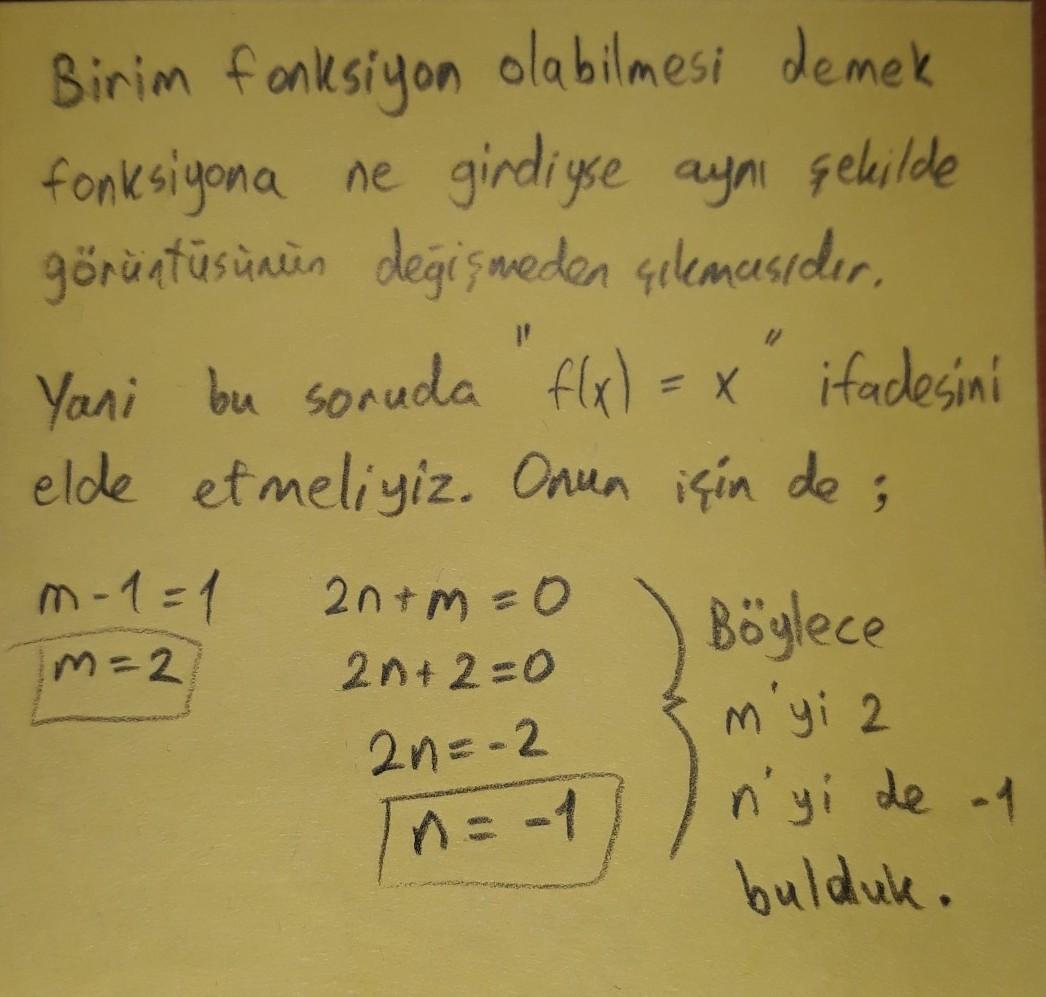 Birim fonksiyon olabilmesi demek
fonksiyona ne girdiyse aynı şekilde
görüntüsünün değişmeden çıkmasıdır.
Yani bu soruda "f(x) = x" ifadesini
elde etmeliyiz. Onun için de ;
m-1=1
m=2
2n+m=0
2n+2=0
2n=-2
n=-1
Böylece
m'yi 2
n'yi de -1
bulduk.